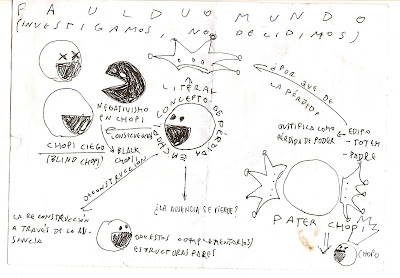 FAULDUO MUNDO
(INVESTIGAMOS, NO DECIDIMOS)
¿POR QUÉ DE
LA PÉRDIDA?
LITERAL
CONCEPTO DE PÉRDIDA
EN CHOPI
NEGATIVISMO
EN CHOPI
CONSECUENCIA
BLACK
CHOPI
CHOPI CIEGO
(BLIND CHOPI)
DECONSTRUCCIÓN
JUSTIFICA COMO
PÉRDIDA DE PODER
EDIPO
TOTEM
PADRE
¿LA AUSENCIA SE PIERDE?
PATER CHOPI
CHOPO
LA RECONSTRUCCIÓN
A TRAVÉS DE LA AU-
SENCIA
OPUESTOS COMPLEMENTARIOS/
ESTRUCTURAS PARES